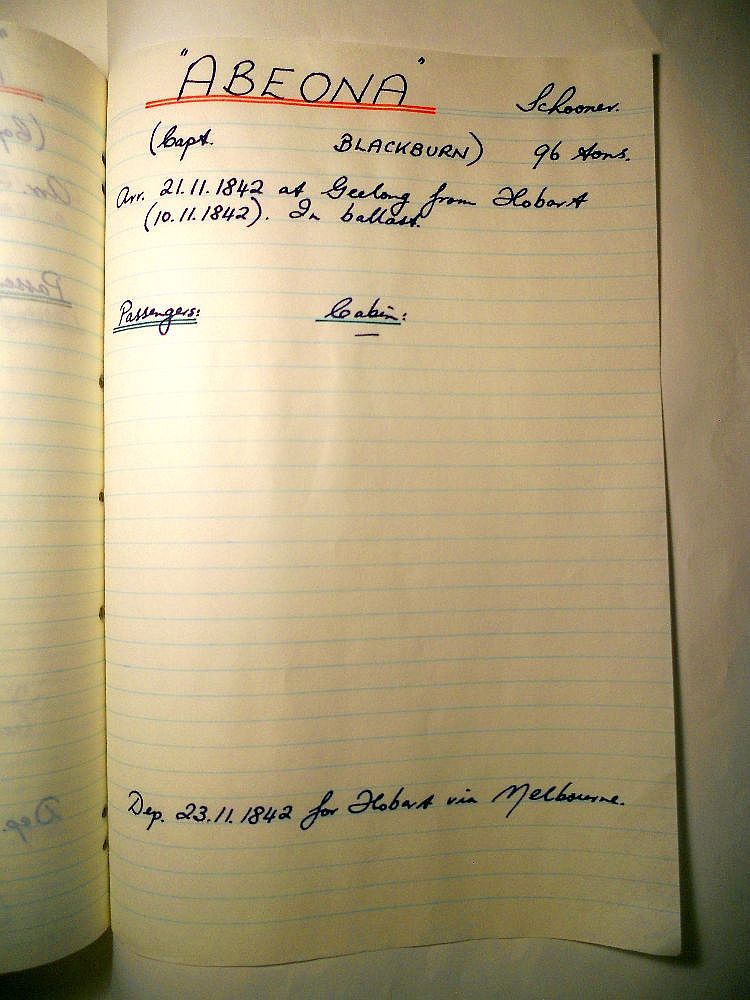 "ABEONA" Schooner.
(Capt. BLACKBURN) 96 tons.
Arr. 21.11.1842 at Geelong from Hobart
(10.11.1842). In ballast.
Passengers: Cabin:
—
Dep. 23.11.1842 for Hobart via Melbourne.